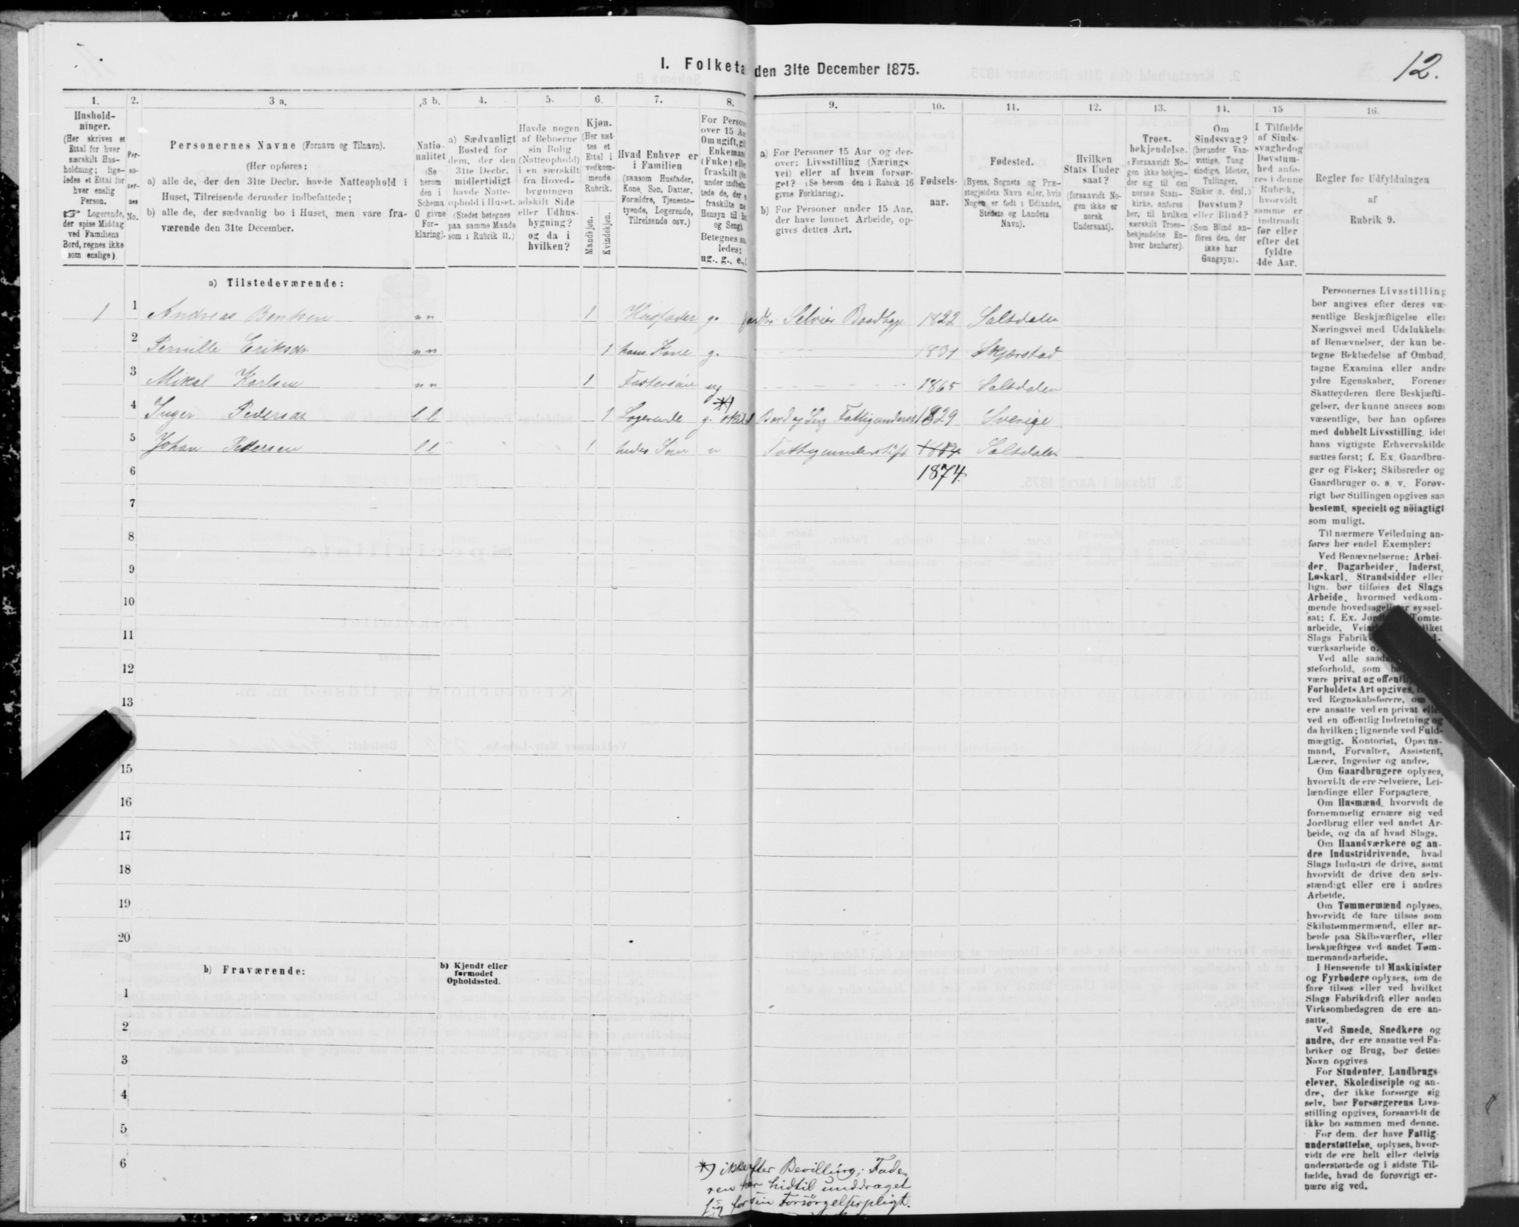 12.
I. Folketa
den 31te December 1875.
1.
Hushold-
ninger.
(Her skrives et
Ettal for hver
særskilt Hus-
holdning; lige-
ledes et Ettal for
hver enslig
Person.
☞ Logerende,
der spise Middag
ved Familiens
Bord, regnes ikke
som enslige)
2.
Per-
so-
ner-
nes
No.
3 a.
Personernes Navne (Fornavn og Tilnavn).
(Her opføres:
a) alle de, der den 31te Decbr. havde Natteophold i
Huset, Tilreisende derunder indbefattede;
b) alle de, der sædvanlig bo i Huset, men vare fra-
værende den 31te December.
3 b.
Natio-
nalitet
(Se
herom
den i
Schema
0 givne
For-
klaring).
4.
a) Sædvanligt
Bosted for
dem, der den
31te Decbr.
midlertidigt
havde Natte-
ophold i Huset.
(Stedet betegnes
paa samme Maade
som i Rubrik 11.)
5.
Havde nogen
af Beboerne
sin Bolig
(Natteophold)
i en særskilt
fra Hoved-
bygningen
adskilt Side
eller Udhus-
bygning?
og da i
hvilken?
6.
Kjøn.
(Her sæt-
tes et
Ettal i
vedkom-
mende
Rubrik.
Mandkjøn.
Kvindekjøn.
7.
Hvad Enhver er
i Familien
(saasom Husfader,
Kone, Søn, Datter,
Forældre, Tjeneste-
tyende, Logerende,
Tilreisende osv.)
8.
For Person
over 15 Aa
Om ugift, gi
Enkeman
(Enke) elle
fraskilt
under indbefa
tede de, der
fraskilte
Hensyn til
og Seng).
Betegnes
ledes:
ug., g., e.,
9.
a) For Personer 15 Aar og der-
over: Livsstilling (Nærings-
vei) eller af hvem forsør-
get? (Se herom den i Rubrik 16
givne Forklaring).
b) For Personer under 15 Aar,
der have lønnet Arbeide, op-
gives dettes Art.
10.
Fødsels-
aar.
11.
Fødested.
(Byens, Sognets og Præ-
stegjeldets Navn eller, hvis
Nogen er født i Udlandet,
Stedets og Landets
Navn).
12.
Hvilken
Stats Under
saat?
(forsaavidt No-
gen ikke er
norsk
Undersaat).
13.
Troes-
bekjendelse.
(Forsaavidt No-
gen ikke bekjen-
der sig til den
norske Stats-
kirke, anføres
her, til hvilken
særskilt Troes-
bekjendelse En-
hver henhører).
14.
Om
Sindssvag?
(herunder Van-
vittige, Tung
sindige, Idioter,
Tullinger,
Sinker o. desl.)
Døvstum?
eller Blind?
(Som Blind an-
føres den, der
ikke har
Gangsyn).
15
I Tilfælde
af Sinds-
svaghed og
Døvstum-
hed anfø-
res i denne
Rubrik,
hvorvidt
samme er
indtraadt
før eller
efter det
fyldte
4de Aar.
16.
Regler for Udfyldningen
af
Rubrik 9.
a) Tilstedeværende:
1 1 Andreas Bentsen " " 1 Husfader g. Selveier 1822 Saltdalen
2 Pernille Eriksdr " " 1 hans Kone g. 1831 Skjerstad
3 Mikal Karlsen " " 1 Fostersøn ug 1865 Saltdalen
4 Inger Pedersdr l l 1 Logerende g. *) skilt Bord og Seng Fattigunderst 1829 Sverige
5 Johan Pedersen l l 1 hendes Søn u Fattigunderstøtt. Saltdalen
6 1874.
7
8
9
10
11
12
13
15
16
17
18
19
20
b) Fraværende:
b) Kjendt eller
formodet
Opholdssted.
1
2
3
4
5
6
*) ikke efter Bevilling; Fade-
ren har hidtil unddraget
sig for sin Forsørgelsespligt.
Personernes Livsstilling
bør angives efter deres væ-
sentlige Beskjæftigelse eller
Næringsvei med Udelukkelse
af Benævnelser, der kun be-
tegne Beklædelse af Ombud,
tagne Examina eller andre
ydre Egenskaber. Forener
Skatteyderen flere Beskjæfti-
gelser, der kunne ansees som
væsentlige, bør han opføres
med dobbelt Livsstilling, idet
hans vigtigste Erhvervskilde
sættes først; f. Ex. Gaardbru-
ger og Fisker; Skibsreder og
Gaardbruger o. s. v. Forøv-
rigt bør Stillingen opgives saa
bestemt, specielt og nøiagtigt
som muligt.
Til nærmere Veiledning an-
føres her endel Exempler:
Ved Benævnelserne: Arbei-
der, Dagarbeider, Inderst,
Løskarl, Strandsidder eller
lign. bør tilføies det Slags
Arbeide, hvormed vedkom-
mende hovedsagelig er syssel-
sat; f. Ex. Tomte-
arbeide,
Slags Fabrik
værksarbeide
Ved alle
steforhold, som
være privat og offentl
Forholdets Art opgives,
ved Regnskabsførere, om
ere ansatte ved en privat eller
ved en offentlig Indretning og
da hvilken; lignende ved Fuld-
mægtig, Kontorist, Opsyns-
mand, Forvalter, Assistent,
Lærer, Ingeniør og andre.
Om Gaardbrugere oplyses,
hvorvidt de ere Selveiere, Lei-
lændinge eller Forpagtere.
Om Husmænd, hvorvidt de
fornemmelig ernære sig ved
Jordbrug eller ved andet Ar-
beide, og da af hvad Slags.
Om Haandværkere og an-
dre Industridrivende, hvad
Slags Industri de drive, samt
hvorvidt de drive den selv-
stændigt eller ere i andres
Arbeide.
Om Tømmermænd oplyses,
hvorvidt de fare tilsøs som
Skibstømmermænd, eller ar-
beide paa Skibsværfter, eller
beskjæftiges ved andet Tøm-
mermandsarbeide.
I Henseende til Maskinister
og Fyrbødere oplyses, om de
fare tilsøs eller ved hvilket
Slags Fabrikdrift eller anden
Virksomhedsgren de ere an-
satte.
Ved Smede, Snedkere og
andre, der ere ansatte ved Fa-
briker og Brug, bør dettes
Navn opgives
For Studenter, Landbrugs-
elever, Skoledisciple og an-
dre, der ikke forsørge sig
selv, bør Forsørgerens Livs-
stilling opgives, forsaavidt de
ikke bo sammen med denne.
For dem, der have Fattig-
understøttelse, oplyses, hvor-
vidt de ere helt eller delvis
understøttede og i sidste Til-
fælde, hvad de forøvrigt er-
nære sig ved.